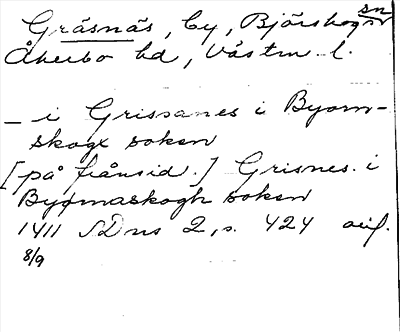 Gräsnäs, by, Björskogs sn
Åkerbo hd, Västm. l.
– i Grissanes i Byorn-
skogx soken
[på frånsid.] Grisnes i
Byornaskogh soken
1411 SD ns 2, s. 424 orig.
8/9